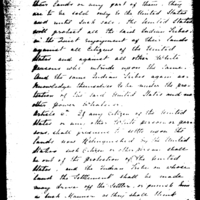 their Lands or any part of them, they
are to be sold only to the United States
and until such sale, the United States
will protect all the said Indian Tribes
in the quiet enjoyment of their Lands
against all Citizens of the United
States and against all other White
Persons who intrude upon the same.
And the said Indian Tribes again ac-
knowledge themselves to be under the pro-
tection of the said United States and no
other Power Whatever.
Article 6th If any Citizen of the United
States or any other White person or per-
sons, shall presume to settle upon the
Lands now Relinquished by the United
States such Citizen or other person shall
be out of the protection of the United
States, and the Indian Tribe on whose
Land the settlement shall be made
may drive off the Settler, or punish him
in such Manner as they shall think